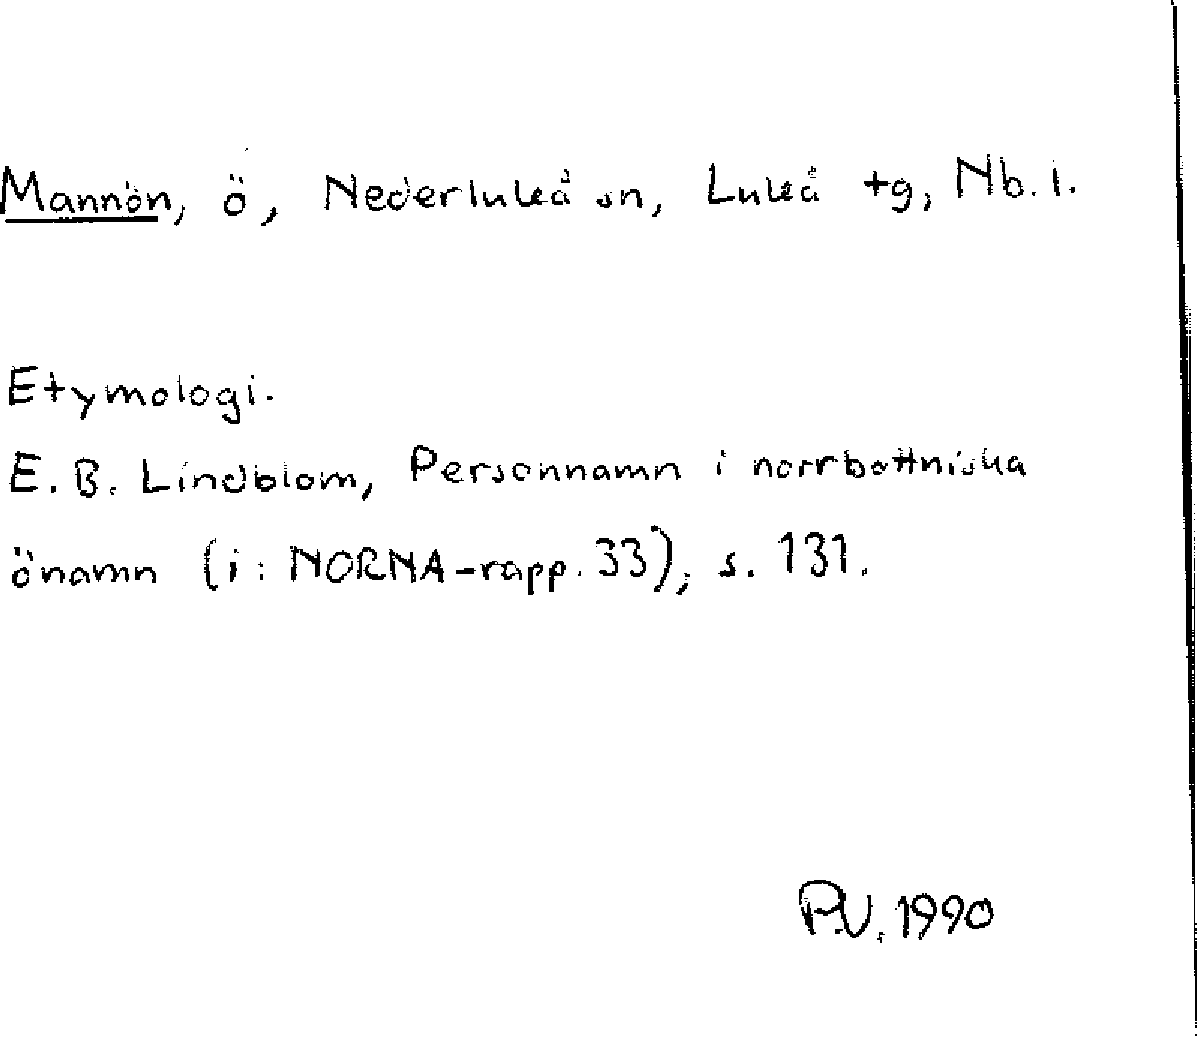 Mannön, ö, Nederluleå sn, Luleå tg, Nb. l.
Etymologi.
E. B. Lindblom, Personnamn i norrbottniska
önamn (i: NORNA-rapp. 33), s. 131.
P.V. 1990